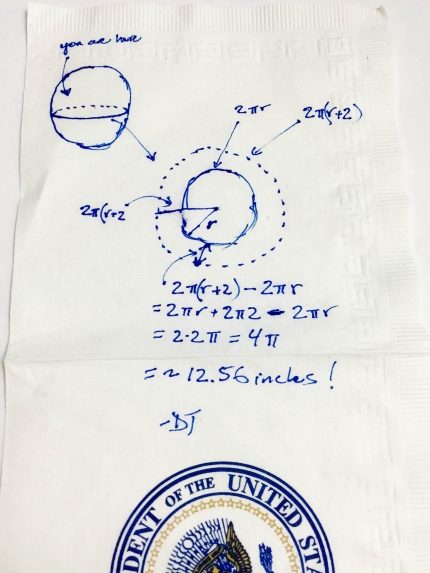 you are here
2πr
2π(r+2)
2π(r+2
r
2π(r+2) - 2πr
= 2πr + 2π2 - 2πr
= 2·2π = 4π
= ~ 12.56 inches!
-DJ
DENT OF THE UNITED STA